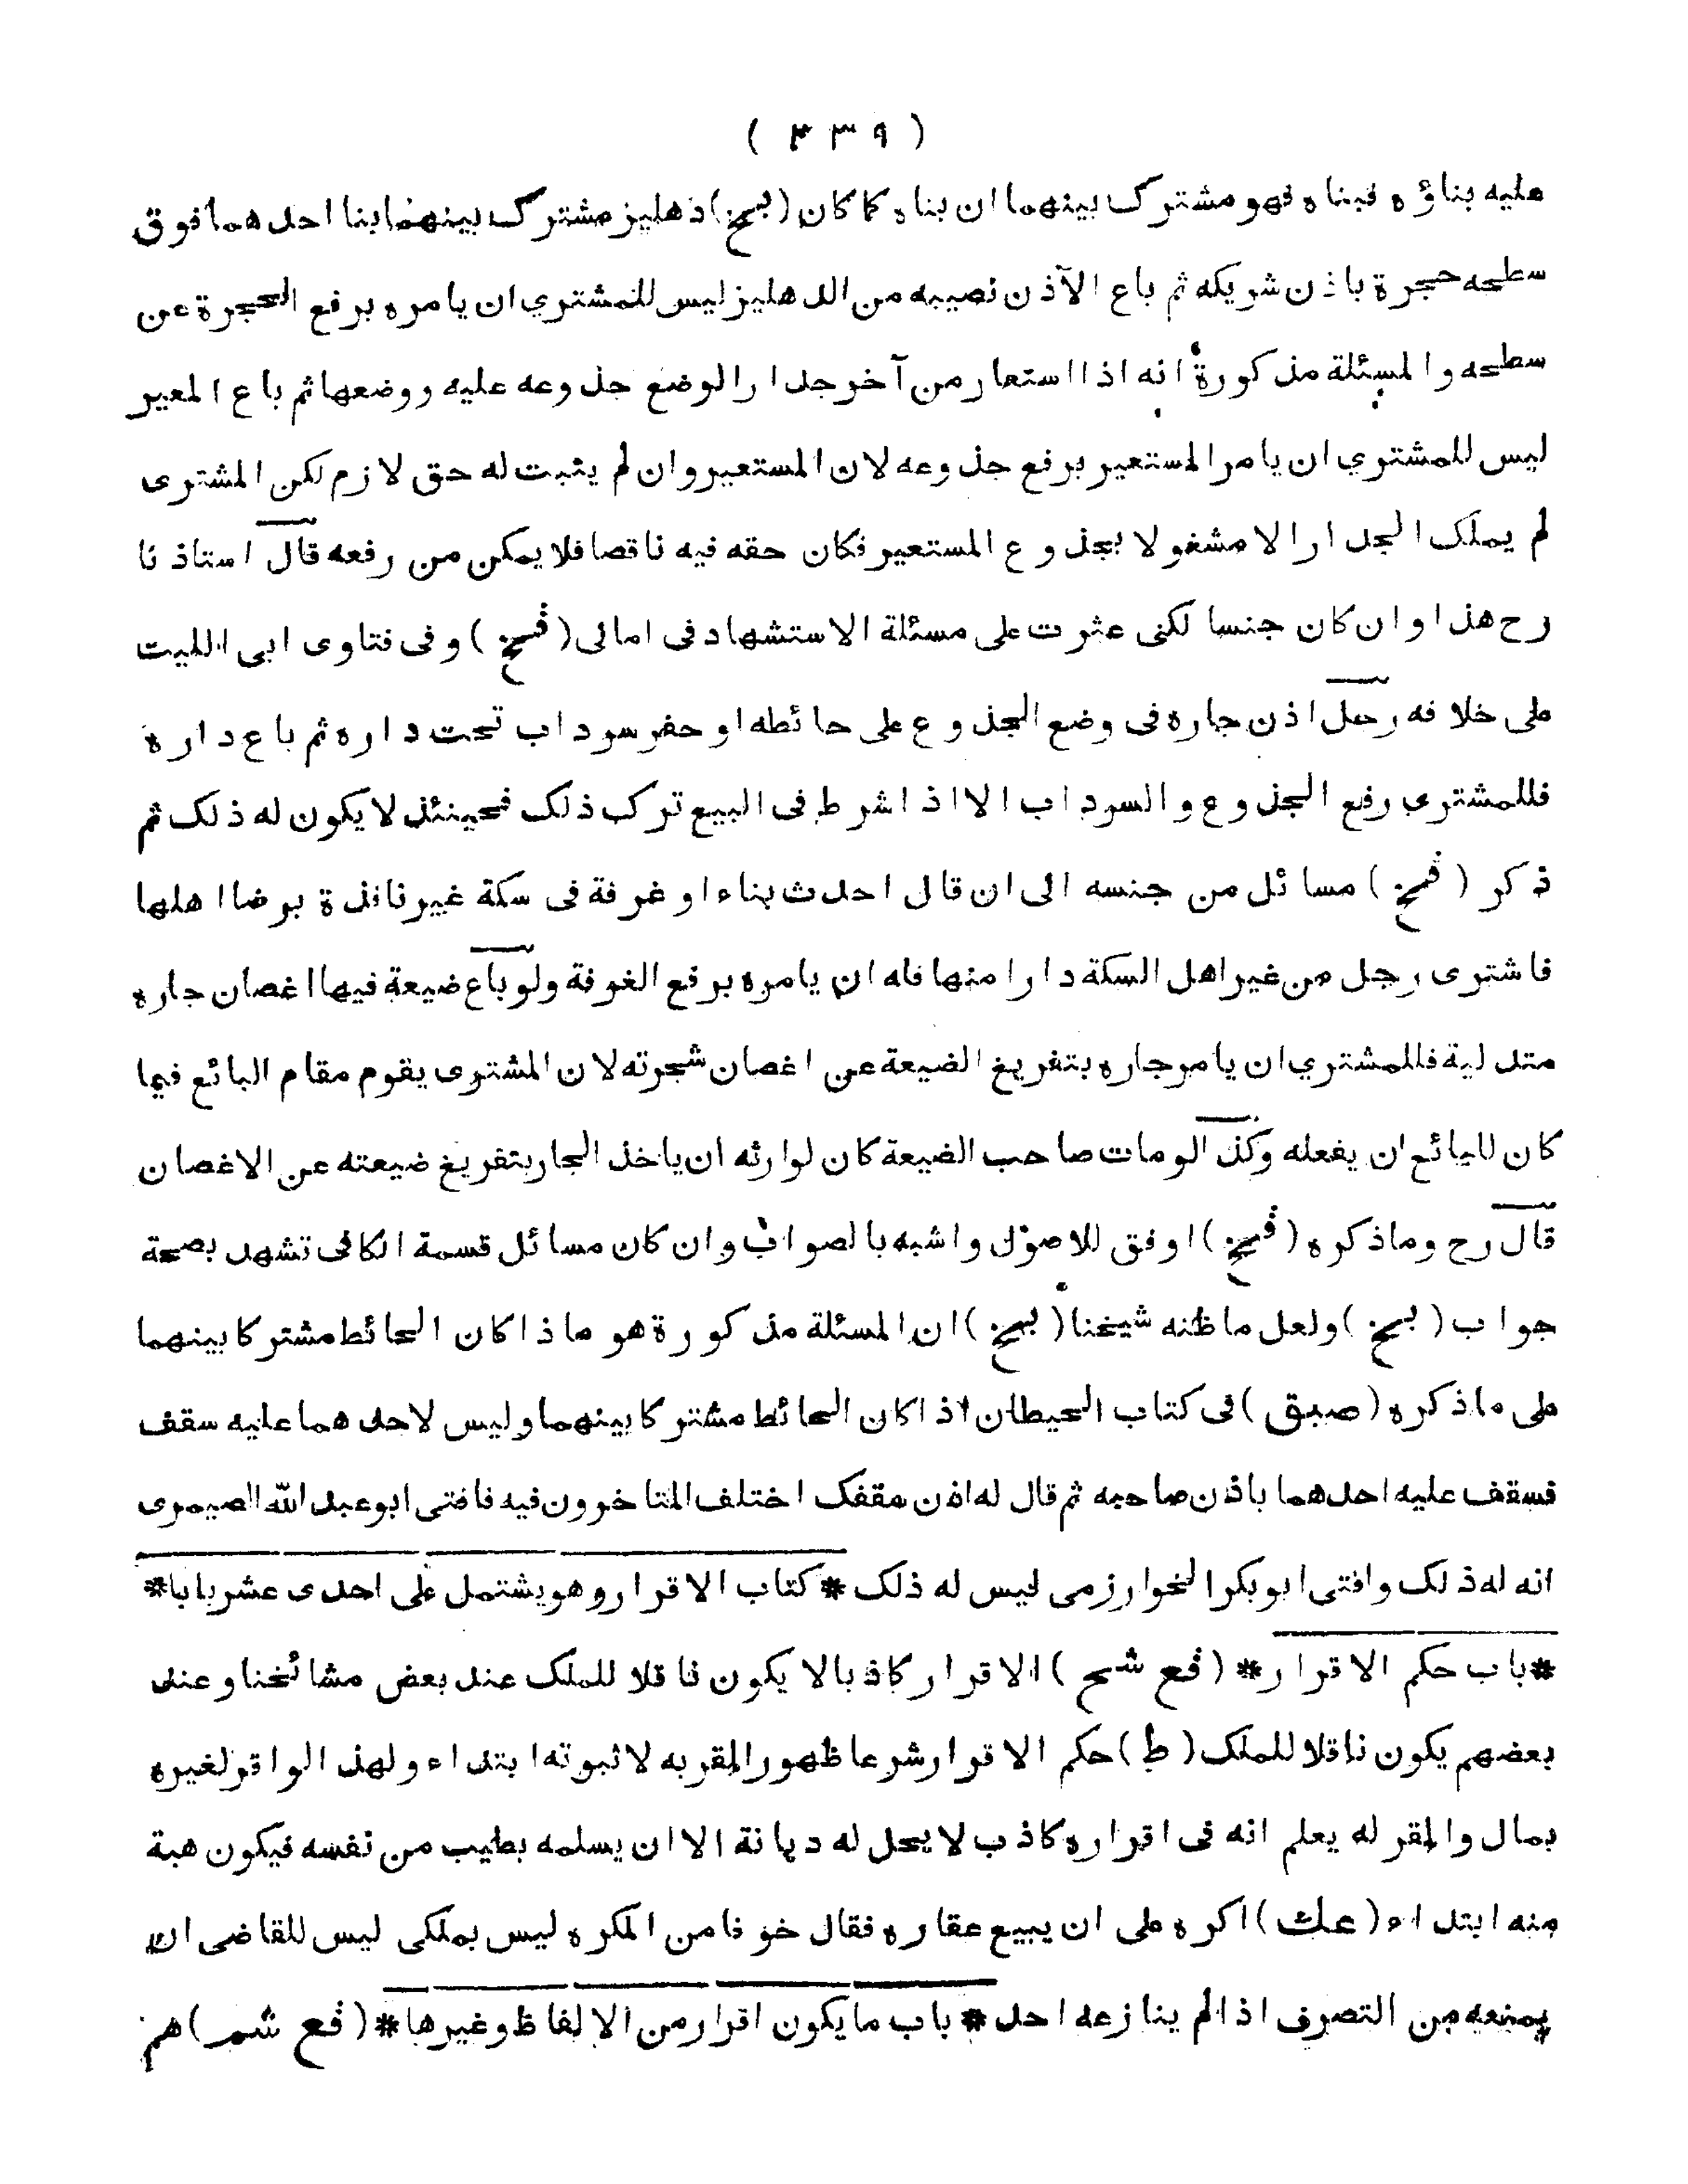 ( ۳۳۹ )
عليه بناؤه فبناه فهو مشترك بينهما ان بناه كما كان (بمخ) دهليز مشترك بينهما بنا احدهما فوق
سطحه حجرة باذن شريكه ثم باع الآذن نصيبه من الدهليز ليس للمشتري ان يامره برفع الحجرة عن
سطحه والمسئلة مذكورة انه اذا استعار من آخر جدارا لوضع جذوعه عليه ووضعها ثم باع المعير
ليس للمشتري ان يامر المستعير برفع جذوعه لان المستعير وان لم يثبت له حق لازم لكن المشترى
لم يملك الجدار الا مشغولا بجذوع المستعير فكان حقه فيه ناقصا فلا يمكن من رفعه قال استاذنا
رح هذا وان كان جنسا لكنى عثرت على مسئلة الاستشهاد فى امالى (قمخ) وفى فتاوى ابى الليت
على خلافه رجل اذن جاره فى وضع الجذوع على حائطه او حفر سوداب تحت داره ثم باع داره
فللمشترى رفع الجذوع والسوداب الا اذا شرط فى البيع ترك ذلك فحينئذ لا يكون له ذلك ثم
ذكر (قمخ) مسائل من جنسه الى ان قال احدث بناء او غرفة فى سكة غير نافذة برضا اهلها
فاشترى رجل من غير اهل السكة دارا منها فله ان يامره برفع الغرفة ولو باع ضيعة فيها اغصان جاره
متدلية فللمشتري ان يامر جاره بتفريغ الضيعة عن اغصان شجرته لان المشترى يقوم مقام البائع فيما
كان للبائع ان يفعله وكذا لو مات صاحب الضيعة كان لوارثه ان ياخذ الجار بتفريغ ضيعته عن الاغصان
قال رح وما ذكره (قمخ) اوفق للاصول واشبه بالصواب وان كان مسائل قسمة الكافى تشهد بصحة
جواب (بمخ) ولعل ما ظنه شيخنا (بمخ) ان المسئلة مذكورة هو ما ذا كان الحائط مشتركا بينهما
على ما ذكره (صبق) فى كتاب الحيطان اذا كان الحائط مشتركا بينهما وليس لاحدهما عليه سقف
فسقف عليه احدهما باذن صاحبه ثم قال له اذن مقفك اختلف المتاخرون فيه فافتى ابو عبد الله الصيمرى
انه له ذلك وافتى ابو بكر الخوارزمى ليس له ذلك * كتاب الاقرار وهو يشتمل على احدى عشر بابا *
* باب حكم الاقرار * (قع شح) الاقرار كاذبا لا يكون ناقلا للملك عند بعض مشائخنا وعند
بعضهم يكون ناقلا للملك (ط) حكم الاقرار شرعا ظهور المقر به لا ثبوته ابتداء ولهذا لو اقر لغيره
بمال والمقر له يعلم انه فى اقراره كاذب لا يحل له ديانة الا ان يسلمه بطيب من نفسه فيكون هبة
منه ابتداء (عك) اكره على ان يبيع عقاره فقال خوفا من المكره ليس بملكى ليس للقاضى ان
يمنعه من التصرف اذا لم ينازعه احد * باب ما يكون اقرار من الالفاظ وغيرها * (قع شمـ) هم